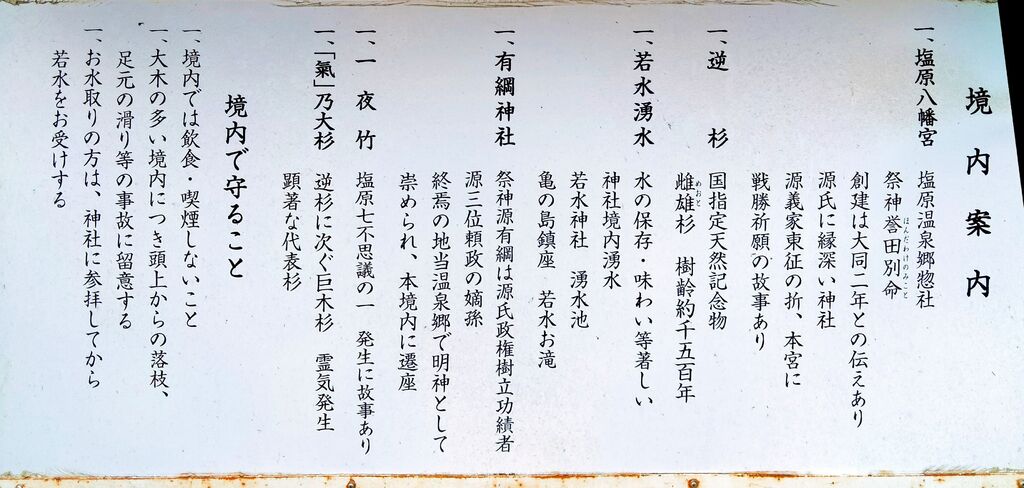 境内案内
一、塩原八幡宮 塩原温泉郷惣社
祭神誉田別命
ほんだわけのみこと
創建は大同二年との伝えあり
源氏に縁深い神社
源義家東征の折、本宮に
戦勝祈願の故事あり
一、逆杉 国指定天然記念物
雌雄杉 樹齢約千五百年
めおと
一、若水湧水 水の保存・味わい等著しい
神社境内湧水
若水神社 湧水池
亀の島鎮座 若水お滝
一、有綱神社 祭神源有綱は源氏政権樹立功績者
源三位頼政の嫡孫
終焉の地当温泉郷で明神として
崇められ、本境内に遷座
一、一夜竹 塩原七不思議の一 発生に故事あり
一、「氣」乃大杉 逆杉に次ぐ巨木杉 霊気発生
顕著な代表杉
境内で守ること
一、境内では飲食・喫煙しないこと
一、大木の多い境内につき頭上からの落枝、
足元の滑り等の事故に留意する
一、お水取りの方は、神社に参拝してから
若水をお受けする